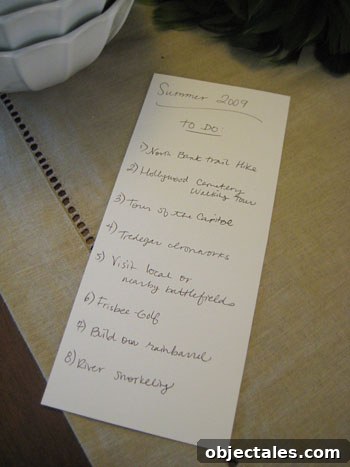 Summer 2009
TO DO:
1) North Bank Trail Hike
2) Hollywood Cemetery
Walking Tour
3) Tour of the Capitol
4) Tredegar Ironworks
5) Visit local or
nearby battlefields
6) Frisbee-Golf
7) Build our rainbarrel
8) River Snorkeling
objectales.com